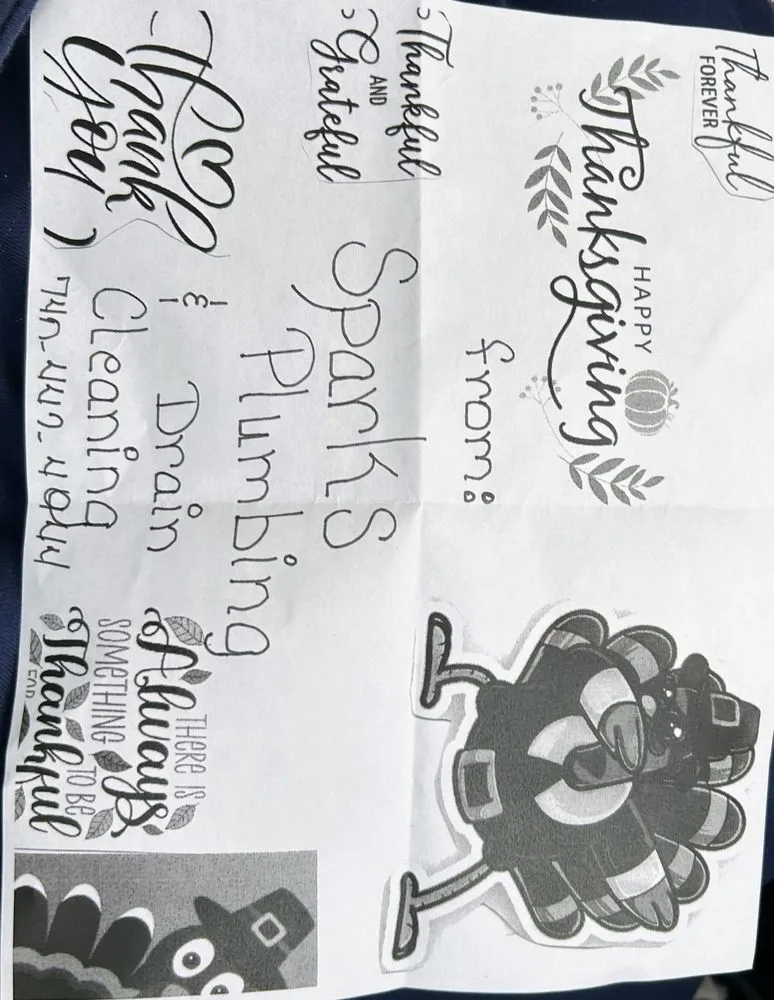 Thankful
FOREVER
HAPPY
Thanksgiving
from:
Thankful
AND
Grateful
Sparks
Plumbing
& Drain
Cleaning
Thank
you
THERE IS
Always
SOMETHING TO BE
Thankful
FOR